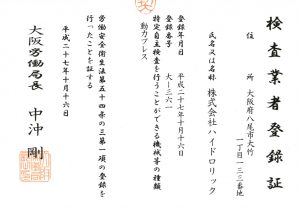 検査業者登録証
住所 大阪府八尾市大竹
一丁目一三三番地
氏名又は名称 株式会社ハイドロリック
登録年月日 平成二十七年十月十六日
登録番号 大－三六一
特定自主検査を行うことができる機械等の種類
動力プレス
労働安全衛生法第五十四条の三第一項の登録を
行ったことを証する
平成二十七年十月十六日
大阪労働局長 中沖剛